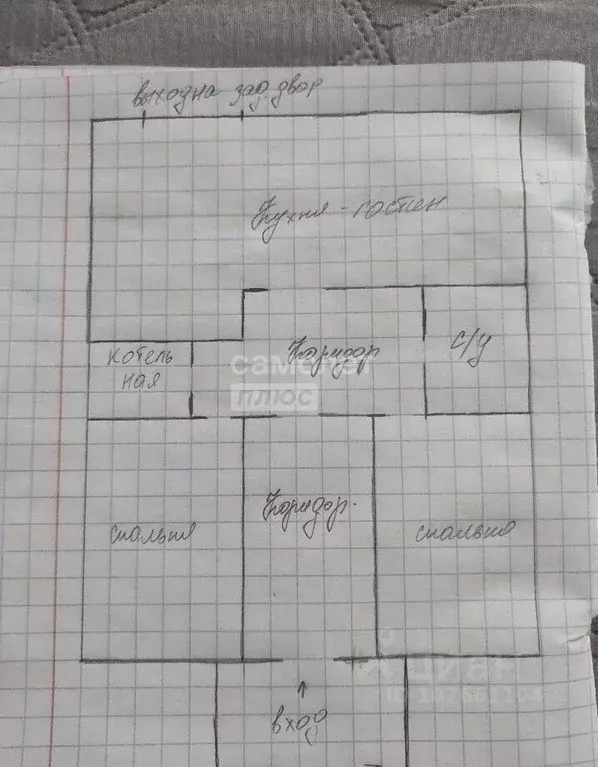 выход на зад двор
Кухня-гостин
котель
ная
Коридор
с/у
самолет
плюс
спальня
Коридор.
спальня
циан
вход